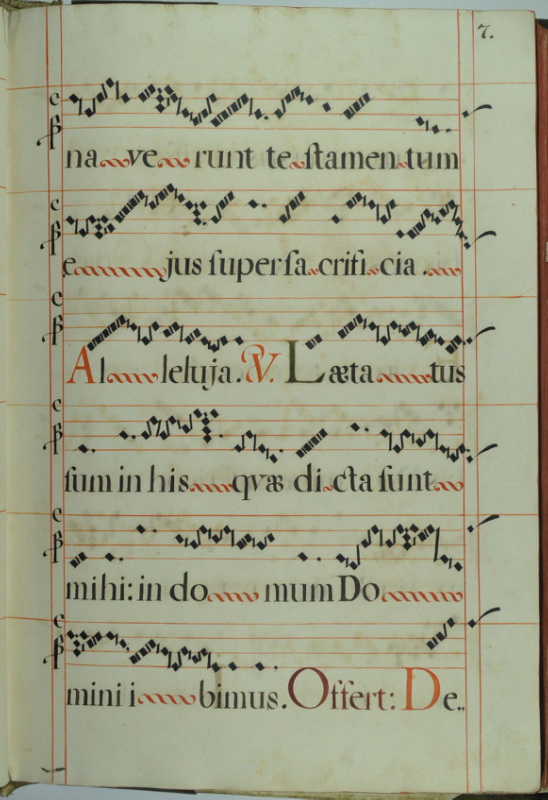 7.
na ve runt te ſtamen tum
e jus ſuper ſa criſi cia .
Al leluja. V. Læta tus
ſum in his qvæ di cta ſunt
mihi: in do mum Do
mini i bimus. Offert: De..